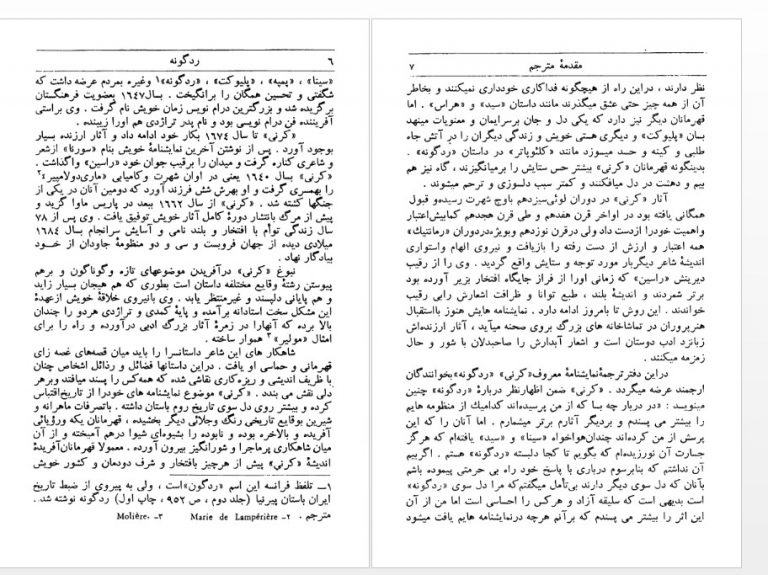 ۶ ردگونه
«سینا» ، «پمپه» ، «پلیوکت» ، «ردگونه»۱ وغیره بمردم عرضه داشت که
شگفتی و تحسین همگان را برانگیخت . بسال۱۶۴۷ بعضویت فرهنگستان
برگزیده شد و بزرگترین درام نویس زمان خویش نام گرفت . وی براستی
آفریننده فن درام نویسی بود و نام پدر تراژدی هم اورا زیبنده .
«کرنی» تا سال ۱۶۷۴ بکار خود ادامه داد و آثار ارزنده بسیار
بوجود آورد . پس از نوشتن آخرین نمایشنامهٔ خویش بنام «سورنا» ازشعر
و شاعری کناره گرفت و میدان را برقیب جوان خود «راسین» واگذاشت .
«کرنی» بسال ۱۶۴۰ یعنی در اوان شهرت وکامیابی «ماری‌دولامپیر»۲
را بهمسری گرفت و او بهرش شش فرزند آورد که دومین آنان در یکی از
جنگها کشته شد . «کرنی» از سال ۱۶۶۲ ببعد در پاریس ماوا گزید و
پیش از مرگ بانتشار دورهٔ کامل آثار خویش توفیق یافت . وی پس از ۷۸
سال زندگی توأم با افتخار و بلند نامی و آسایش سرانجام بسال ۱۶۸۴
میلادی دیده از جهان فروبست و سی و دو منظومهٔ جاودان از خود
بیادگار نهاد .
نبوغ «کرنی» درآفریدن موضوعهای تازه وگوناگون و برهم
پیوستن رشتهٔ وقایع مختلفه داستان است بطوری که هم هیجان بسیار زاید
و هم پایانی دلپسند و غیرمنتظر یابد . وی بانیروی خلاقهٔ خویش ازعهدهٔ
این مشکل سخت استادانه برآمده و پایهٔ کمدی و تراژدی هردو را چندان
بالا برده که آنهارا در زمرهٔ آثار بزرگ ادبی درآورده و راه را برای
امثال «مولیر»۳ هموار ساخته .
شاهکار های این شاعر داستانسرا را باید میان قصه‌های غصه زای
قهرمانی و حماسی او یافت . دراین داستانها فضائل و رذائل اشخاص چنان
با ظریف اندیشی و ریزه‌کاری نقاشی شده که همه‌کس را پسند میافتد وبرهر
دلی نقش می بندد . «کرنی» موضوع نمایشنامه های خودرا از تاریخ‌اقتباس
کرده و بیشتر روی دل سوی تاریخ روم باستان داشته . باتصرفات ماهرانه و
شیرین بوقایع تاریخی رنگ وجلائی دیگر بخشیده ، قهرمانان یکه ورؤیائی
آفریده و بالاخره بوده و نابوده را بشیوه‌ای شیوا درهم آمیخته و از آن
میان شاهکاری پرماجرا و شورانگیز بیرون آورده . معمولا قهرمانان‌آفریدهٔ
اندیشهٔ «کرنی» پیش از هرچیز بافتخار و شرف دودمان و کشور خویش
۱ـ تلفظ فرانسه این اسم «ردگون»است ، ولی به پیروی از ضبط تاریخ
ایران باستان پیرنیا (جلد دوم ، ص ۹۵۲ ، چاپ اول) ردگونه نوشته شد .
مترجم . ۲- Marie de Lampérière ۳- Molière.
مقدمهٔ مترجم ۷
نظر دارند ، دراین راه از هیچگونه فداکاری خودداری نمیکنند و بخاطر
آن از همه چیز حتی عشق میگذرند مانند داستان «سید» و «هراس» . اما
قهرمانان دیگر نیز دارد که یکی دل و جان برسرایمان و معنویات مینهد
بسان «پلیوکت» و دیگری هستی خویش و زندگی دیگران را در آتش جاه
طلبی و کینه و حسد میسوزد مانند «کلئوپاتر» در داستان «ردگونه» .
بدینگونه قهرمانان «کرنی» بیشتر حس ستایش را برمیانگیزند ، گاه نیز هم
بیم و دهشت در دل میافکنند و کمتر سبب دلسوزی و ترحم میشوند .
آثار «کرنی» در دوران لوئی‌سیزدهم باوج شهرت رسیده‌و قبول
همگانی یافته بود در اواخر قرن هفدهم و طی قرن هجدهم کمابیش‌اعتبار
واهمیت خودرا ازدست داد ولی درقرن نوزدهم وبویژه‌دردوران «رمانتیک»
همه اعتبار و ارزش از دست رفته را بازیافت و نیروی الهام واستواری
اندیشهٔ شاعر دیگربار مورد توجه و ستایش واقع گردید . وی را از رقیب
دیرینش «راسین» که زمانی اورا از فراز جایگاه افتخار بزیر آورده بود
برتر شمردند و اندیشهٔ بلند ، طبع توانا و ظرافت اشعارش رابی رقیب
خواندند . این روش تا بامروز ادامه دارد . نمایشنامه هایش هنوز بااستقبال
هنرپروران در تماشاخانه های بزرگ بروی صحنه میآید ، آثار ارزنده‌اش
زبانزد ادب دوستان است و اشعار آبدارش را صاحبدلان با شور و حال
زمزمه میکنند .
دراین دفترترجمهٔ‌نمایشنامهٔ معروف«کرنی» «ردگونه»بخوانندگان
ارجمند عرضه میگردد . «کرنی» ضمن اظهارنظر دربارهٔ «ردگونه» چنین
مینویسد : «در دربار چه بسا که از من پرسیده‌اند کدامیك از منظومه هایم
را بیشتر می پسندم و بردیگر آثارم برتر میشمارم . اما آنان را که این
پرسش از من کرده‌اند چندان‌هواخواه «سینا» و «سید» یافته‌ام که هرگز
جسارت آن نورزیده‌ام که بگویم تا کجا دلبسته «ردگونه» هستم . اگربیم
آن نداشتم که بنابرسوم درباری با پاسخ خود راه بی حرمتی پیموده باشم
بآنان که دل سوی دیگر دارند بی‌تأمل میگفتم‌که مرا دل سوی «ردگونه»
است بدیهی است که سلیقه آزاد و هرکس را احساسی است اما من از آن
این اثر را بیشتر می پسندم که برآنم هرچه درنمایشنامه هایم یافت میشود